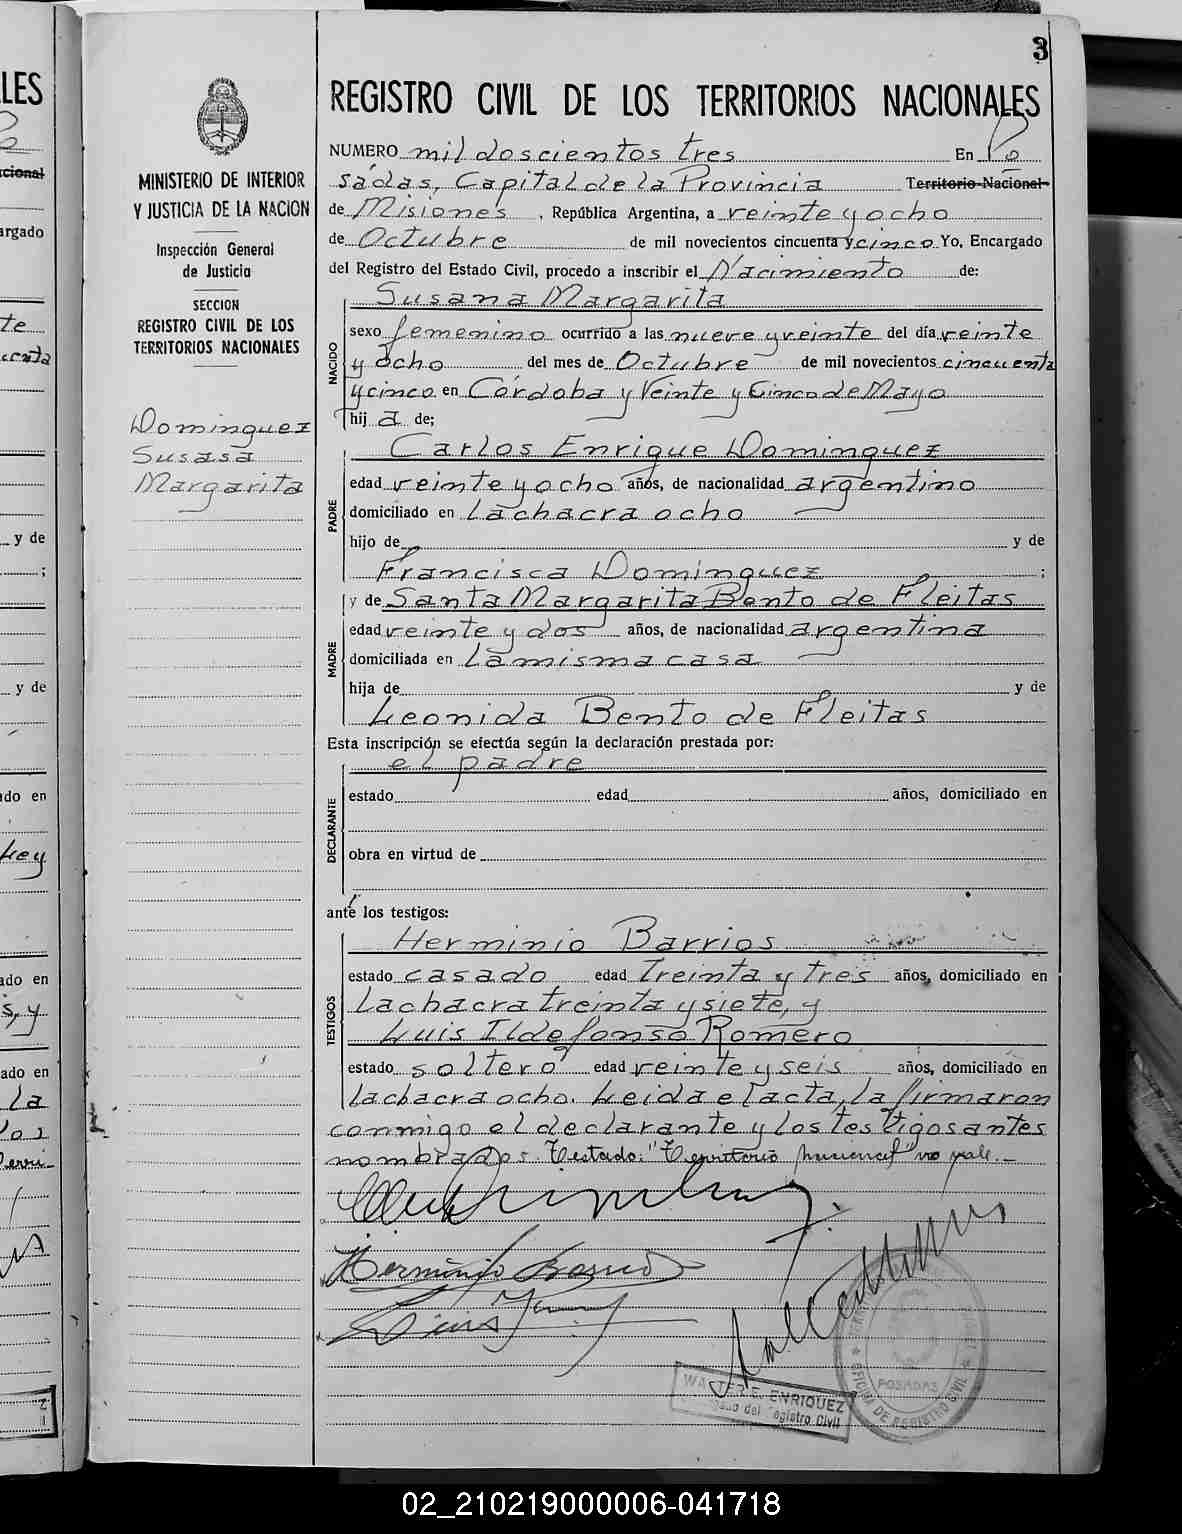 3
REGISTRO CIVIL DE LOS TERRITORIOS NACIONALES
MINISTERIO DE INTERIOR
Y JUSTICIA DE LA NACION
Inspección General
de Justicia
SECCION
REGISTRO CIVIL DE LOS
TERRITORIOS NACIONALES
Dominguez
Susasa
Margarita
NUMERO mil doscientos tres En Po
sadas, Capital de la Provincia Territorio Nacional
de Misiones, República Argentina, a veinte y ocho
de Octubre de mil novecientos cincuenta y cinco Yo, Encargado
del Registro del Estado Civil, procedo a inscribir el Nacimiento de:
Susana Margarita
NACIDO
sexo femenino ocurrido a las nueve y veinte del día veinte
y ocho del mes de Octubre de mil novecientos cincuenta
y cinco en Córdoba y Veinte y Cinco de Mayo
hija de;
Carlos Enrique Dominguez
PADRE
edad veinte y ocho años, de nacionalidad argentino
domiciliado en la chacra ocho
hijo de y de
Francisca Dominguez ;
y de Santa Margarita Bento de Fleitas
MADRE
edad veinte y dos años, de nacionalidad argentina
domiciliada en la misma casa
hija de y de
Leonida Bento de Fleitas
Esta inscripción se efectúa según la declaración prestada por:
el padre
DECLARANTE
estado edad años, domiciliado en
obra en virtud de
ante los testigos:
Herminio Barrios
TESTIGOS
estado casado edad treinta y tres años, domiciliado en
la chacra treinta y siete, y
Luis Ildefonso Romero
estado soltero edad veinte y seis años, domiciliado en
la chacra ocho. Leida el acta, la firmaron
conmigo el declarante y los testigos antes
nombrados. Testado: "Territorio Nacional" no vale.-
Herminio Barrios
WALTER E. ENRIQUEZ
del Registro Civil
POSADAS
OFICINA DE REGISTRO CIVIL
02_210219000006-041718